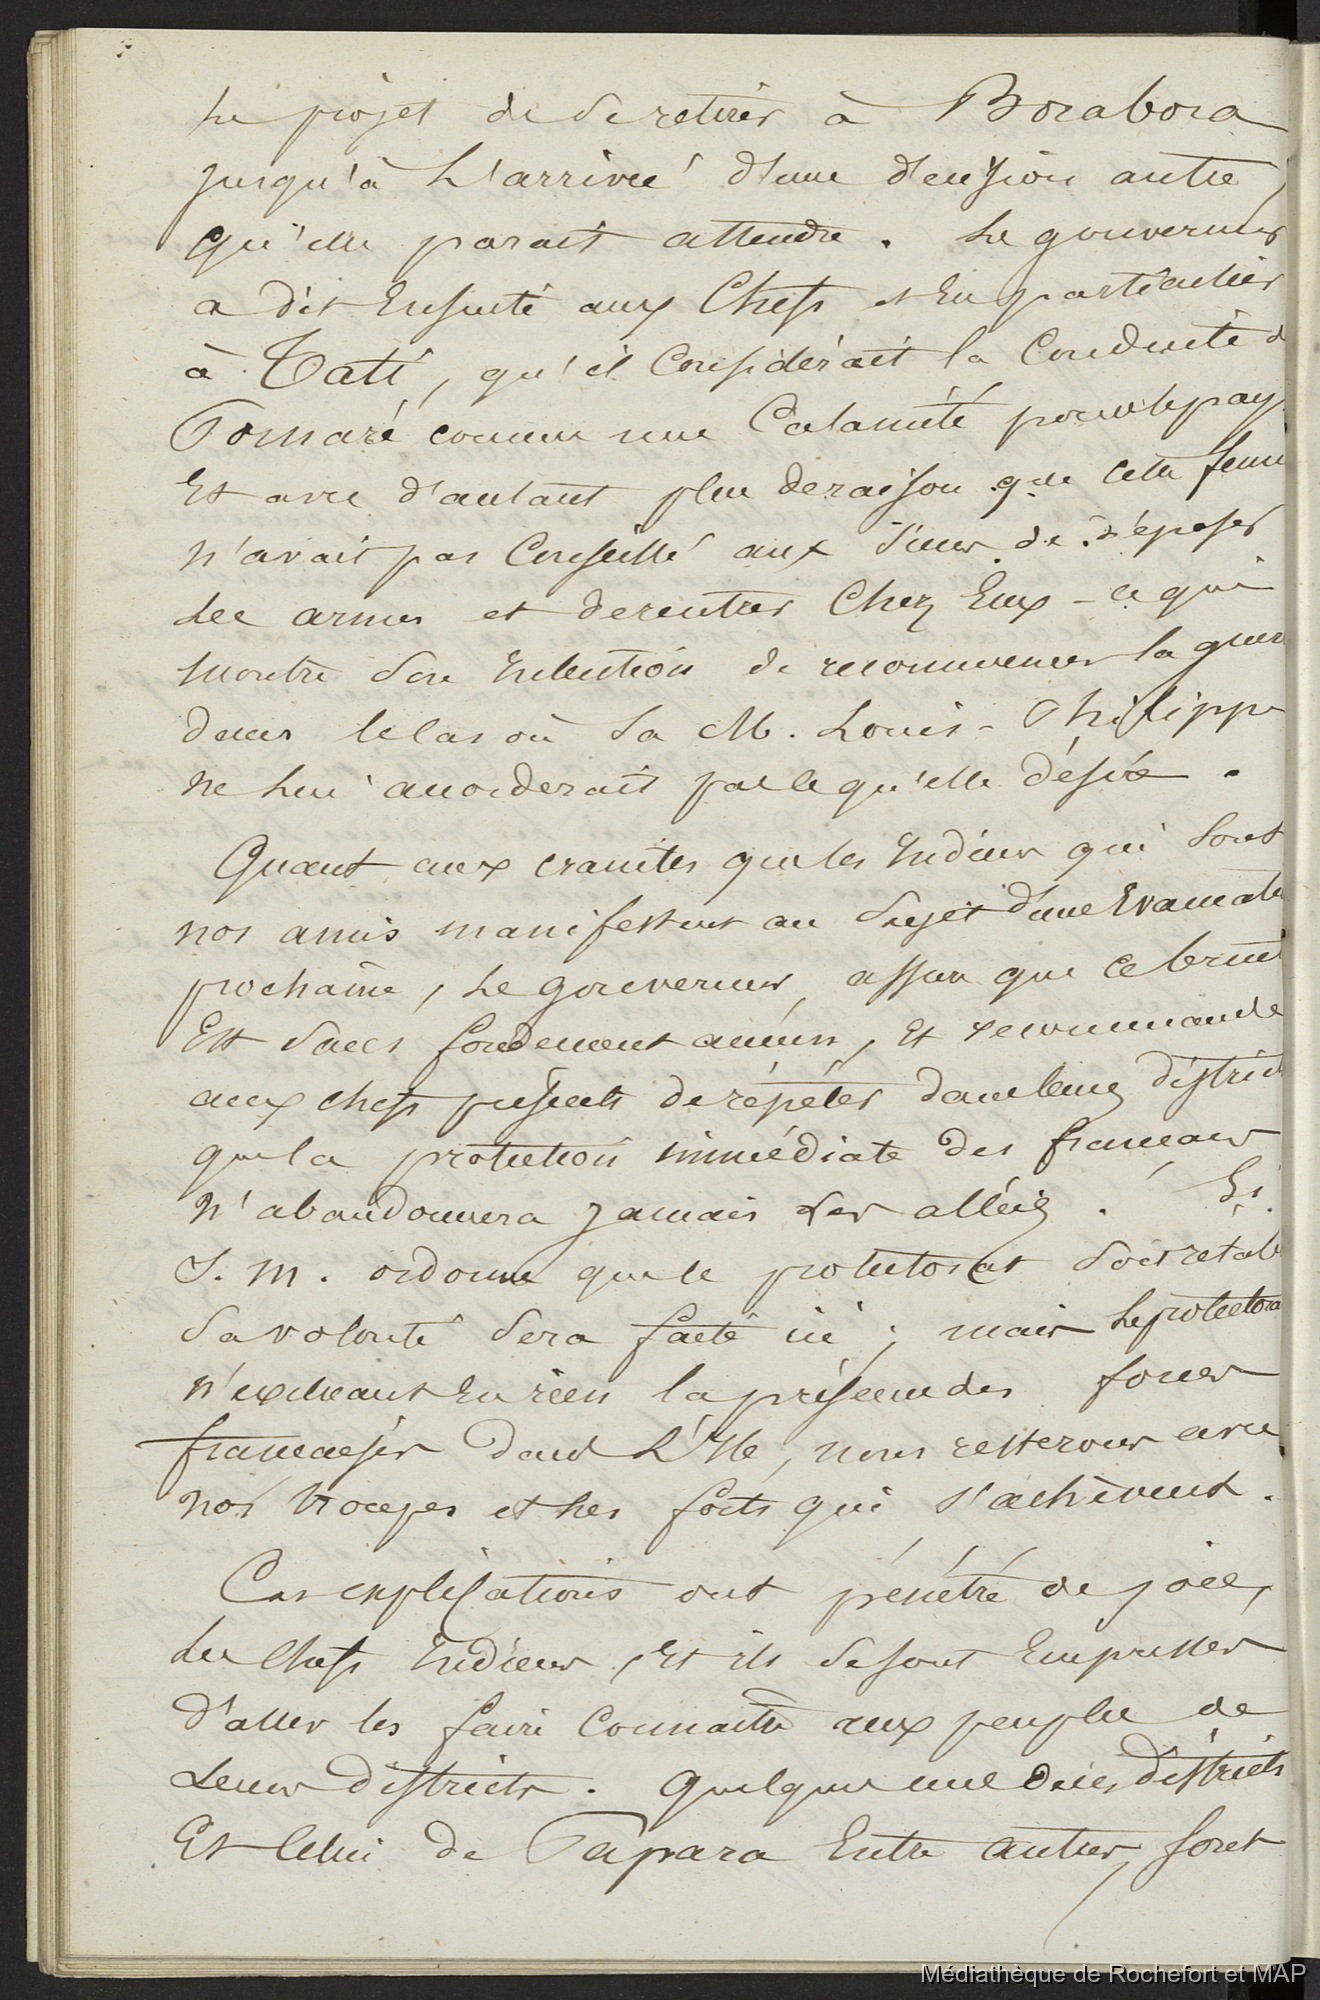 Le projet de se retirer à Borabora
jusqu'à L'arrivée d'une décision autre
qu'elle parait attendre. Le gouverneur
a dit Ensuite aux Chefs et En particulier
à Tati, qu'il Considérait la Conduite d
Pomaré comme une Calamité pour le pays
Et avec d'autant plus de raison que cette femme
n'avait pas Conseillé aux siens de déposer
Les armes et de rentrer Chez Eux - ce qui
montre son intention de recommencer la guerre
dans le cas où Sa M. Louis-Philippe
ne Lui accorderait pas ce qu'elle désire.
Quant aux craintes que les Indiens qui sont
nos amis manifestent au Sujet d'une Evacuatio
prochaine, Le gouverneur, assure que ce bruit
Est sans fondement aucun, Et recommande
aux chefs présents de répéter dans leurs district
que la protection immédiate des français
n'abandonnera jamais les alliés. Si
S. M. ordonne que le protectorat soit rétabli
sa volonté sera faite ici; mais Le protectora
n'excluant En rien la présence des forces
françaises dans L'Ile, nous resterons avec
nos troupes et Les forts qui s'achèvent.
Ces explications ont pénétré de joie,
Les Chefs Indiens, Et ils se sont Empressés
d'aller les faire Connaitre aux peuples de
Leurs districts. Quelques uns de ces districts
Et Celui de Papara Entre autres, font
Médiathèque de Rochefort et MAP